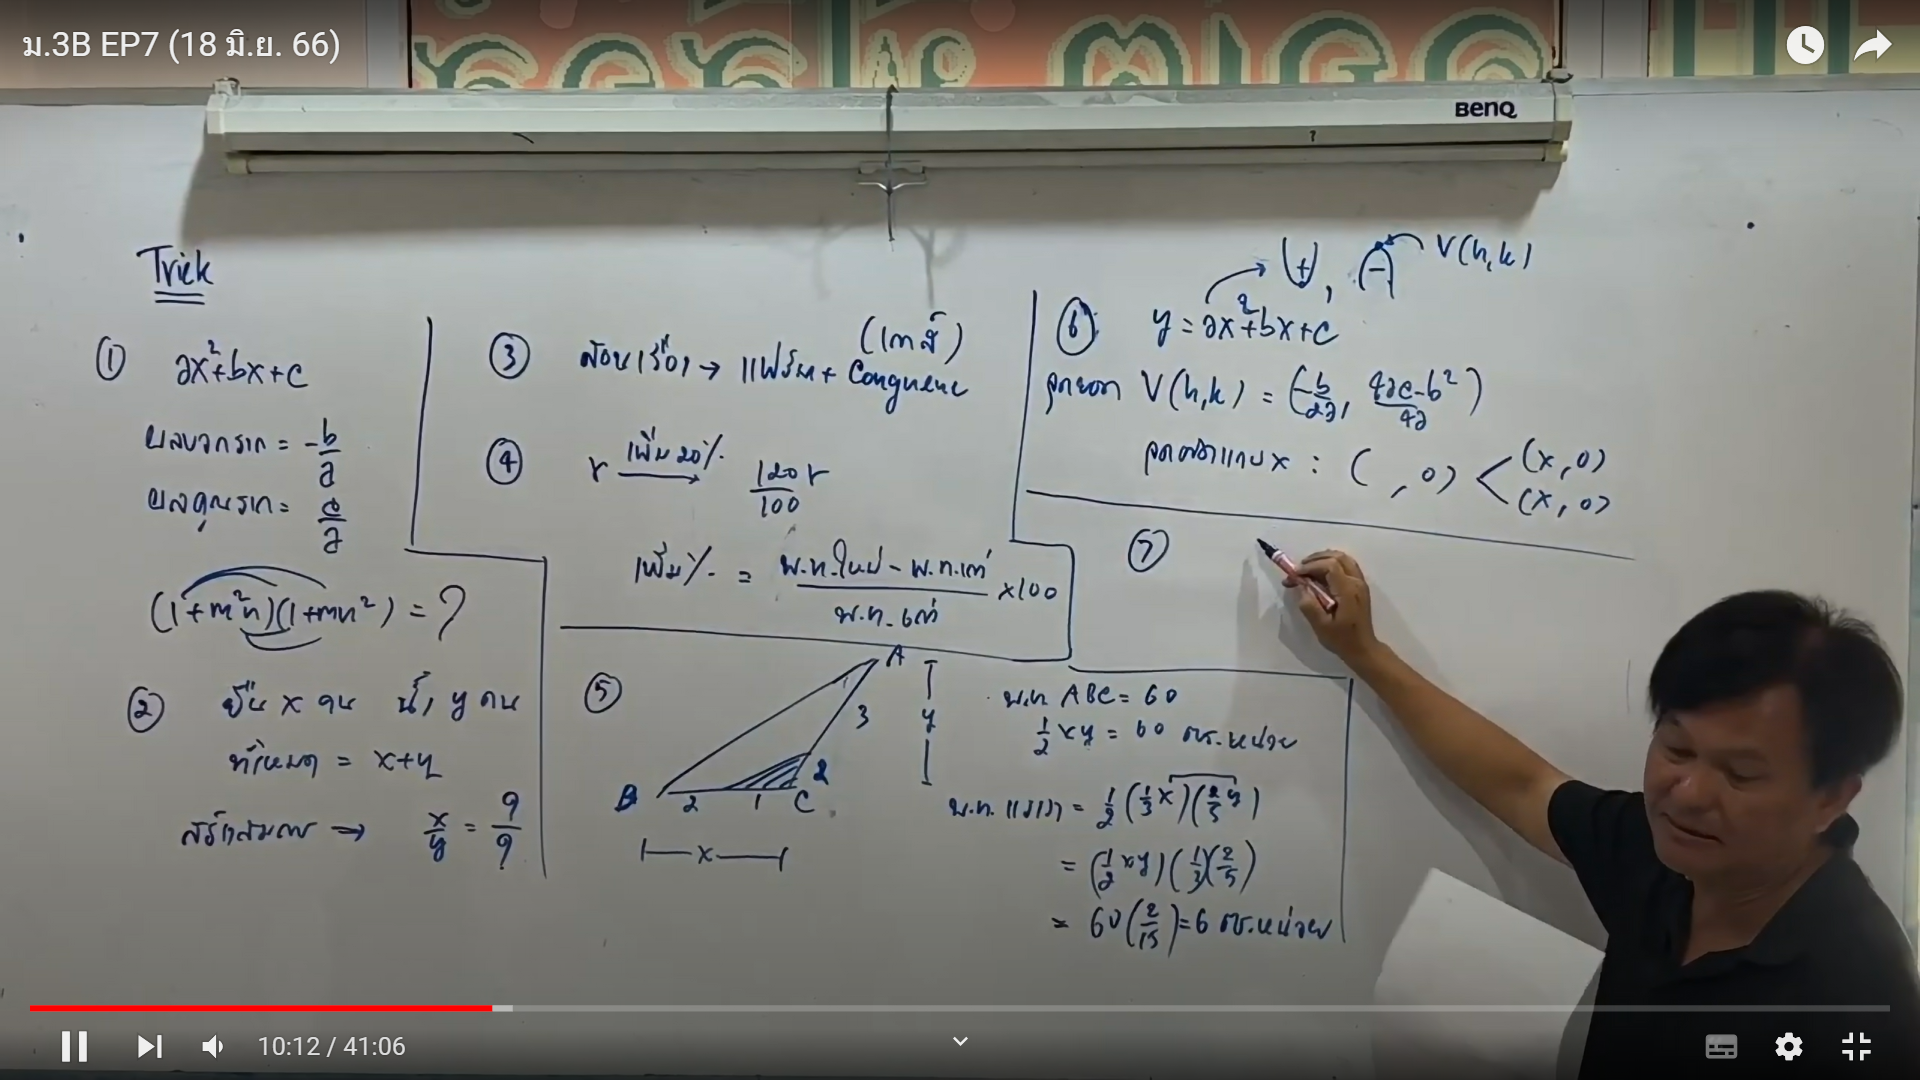 ม.3B EP7 (18 มิ.ย. 66)
BenQ
Trick
① ax²+bx+c
ผลบวกราก = -b/a
ผลคูณราก = c/a
(1+m²n)(1+mn²) = ?
② ยืน x คน นั่ง y คน
ทั้งหมด = x+y
สร้างสมการ → x/y = ?/?
③ → แฟร์มา + Congruence
④ r เพิ่ม 20% → 120r/100
เพิ่ม % = พ.ท.ใหม่ - พ.ท.เก่า / พ.ท.เก่า ×100
⑤
A
3
y
2
B 2 1 C
x
พ.ท ABC = 60
1/2 xy = 60 ตร.หน่วย
พ.ท. แรเงา = 1/2 (1/3 x)(2/5 y)
= (1/2 xy)(1/3)(2/5)
= 60(2/15) = 6 ตร.หน่วย
+ , - V(h,k)
⑥ y = ax²+bx+c
จุดยอด V(h,k) = (-b/2a, 4ac-b²/4a)
จุดตัดแกน x : ( , 0) < (x,0)
(x,0)
⑦
10:12 / 41:06